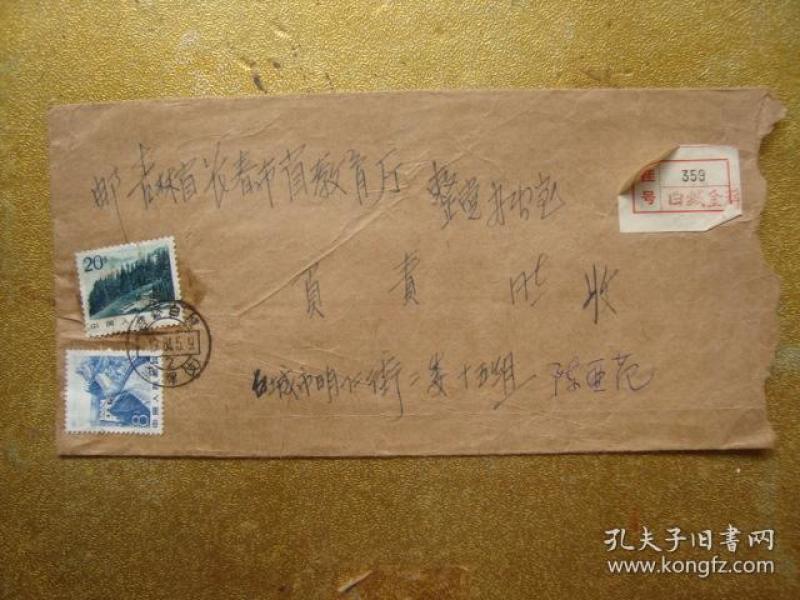 邮 吉林省长春市省教育厅 整党办公室
负责同志 收
白城市明仁街二委十五组 陈亚范
挂号
359
白城金
20分
中国人
8
中国人
84.5.9
2
孔夫子旧书网
www.kongfz.com